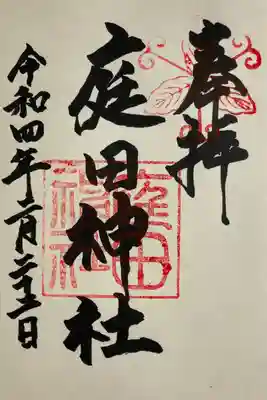 奉拝
庭田神社
令和四年二月二十三日
庭田神社